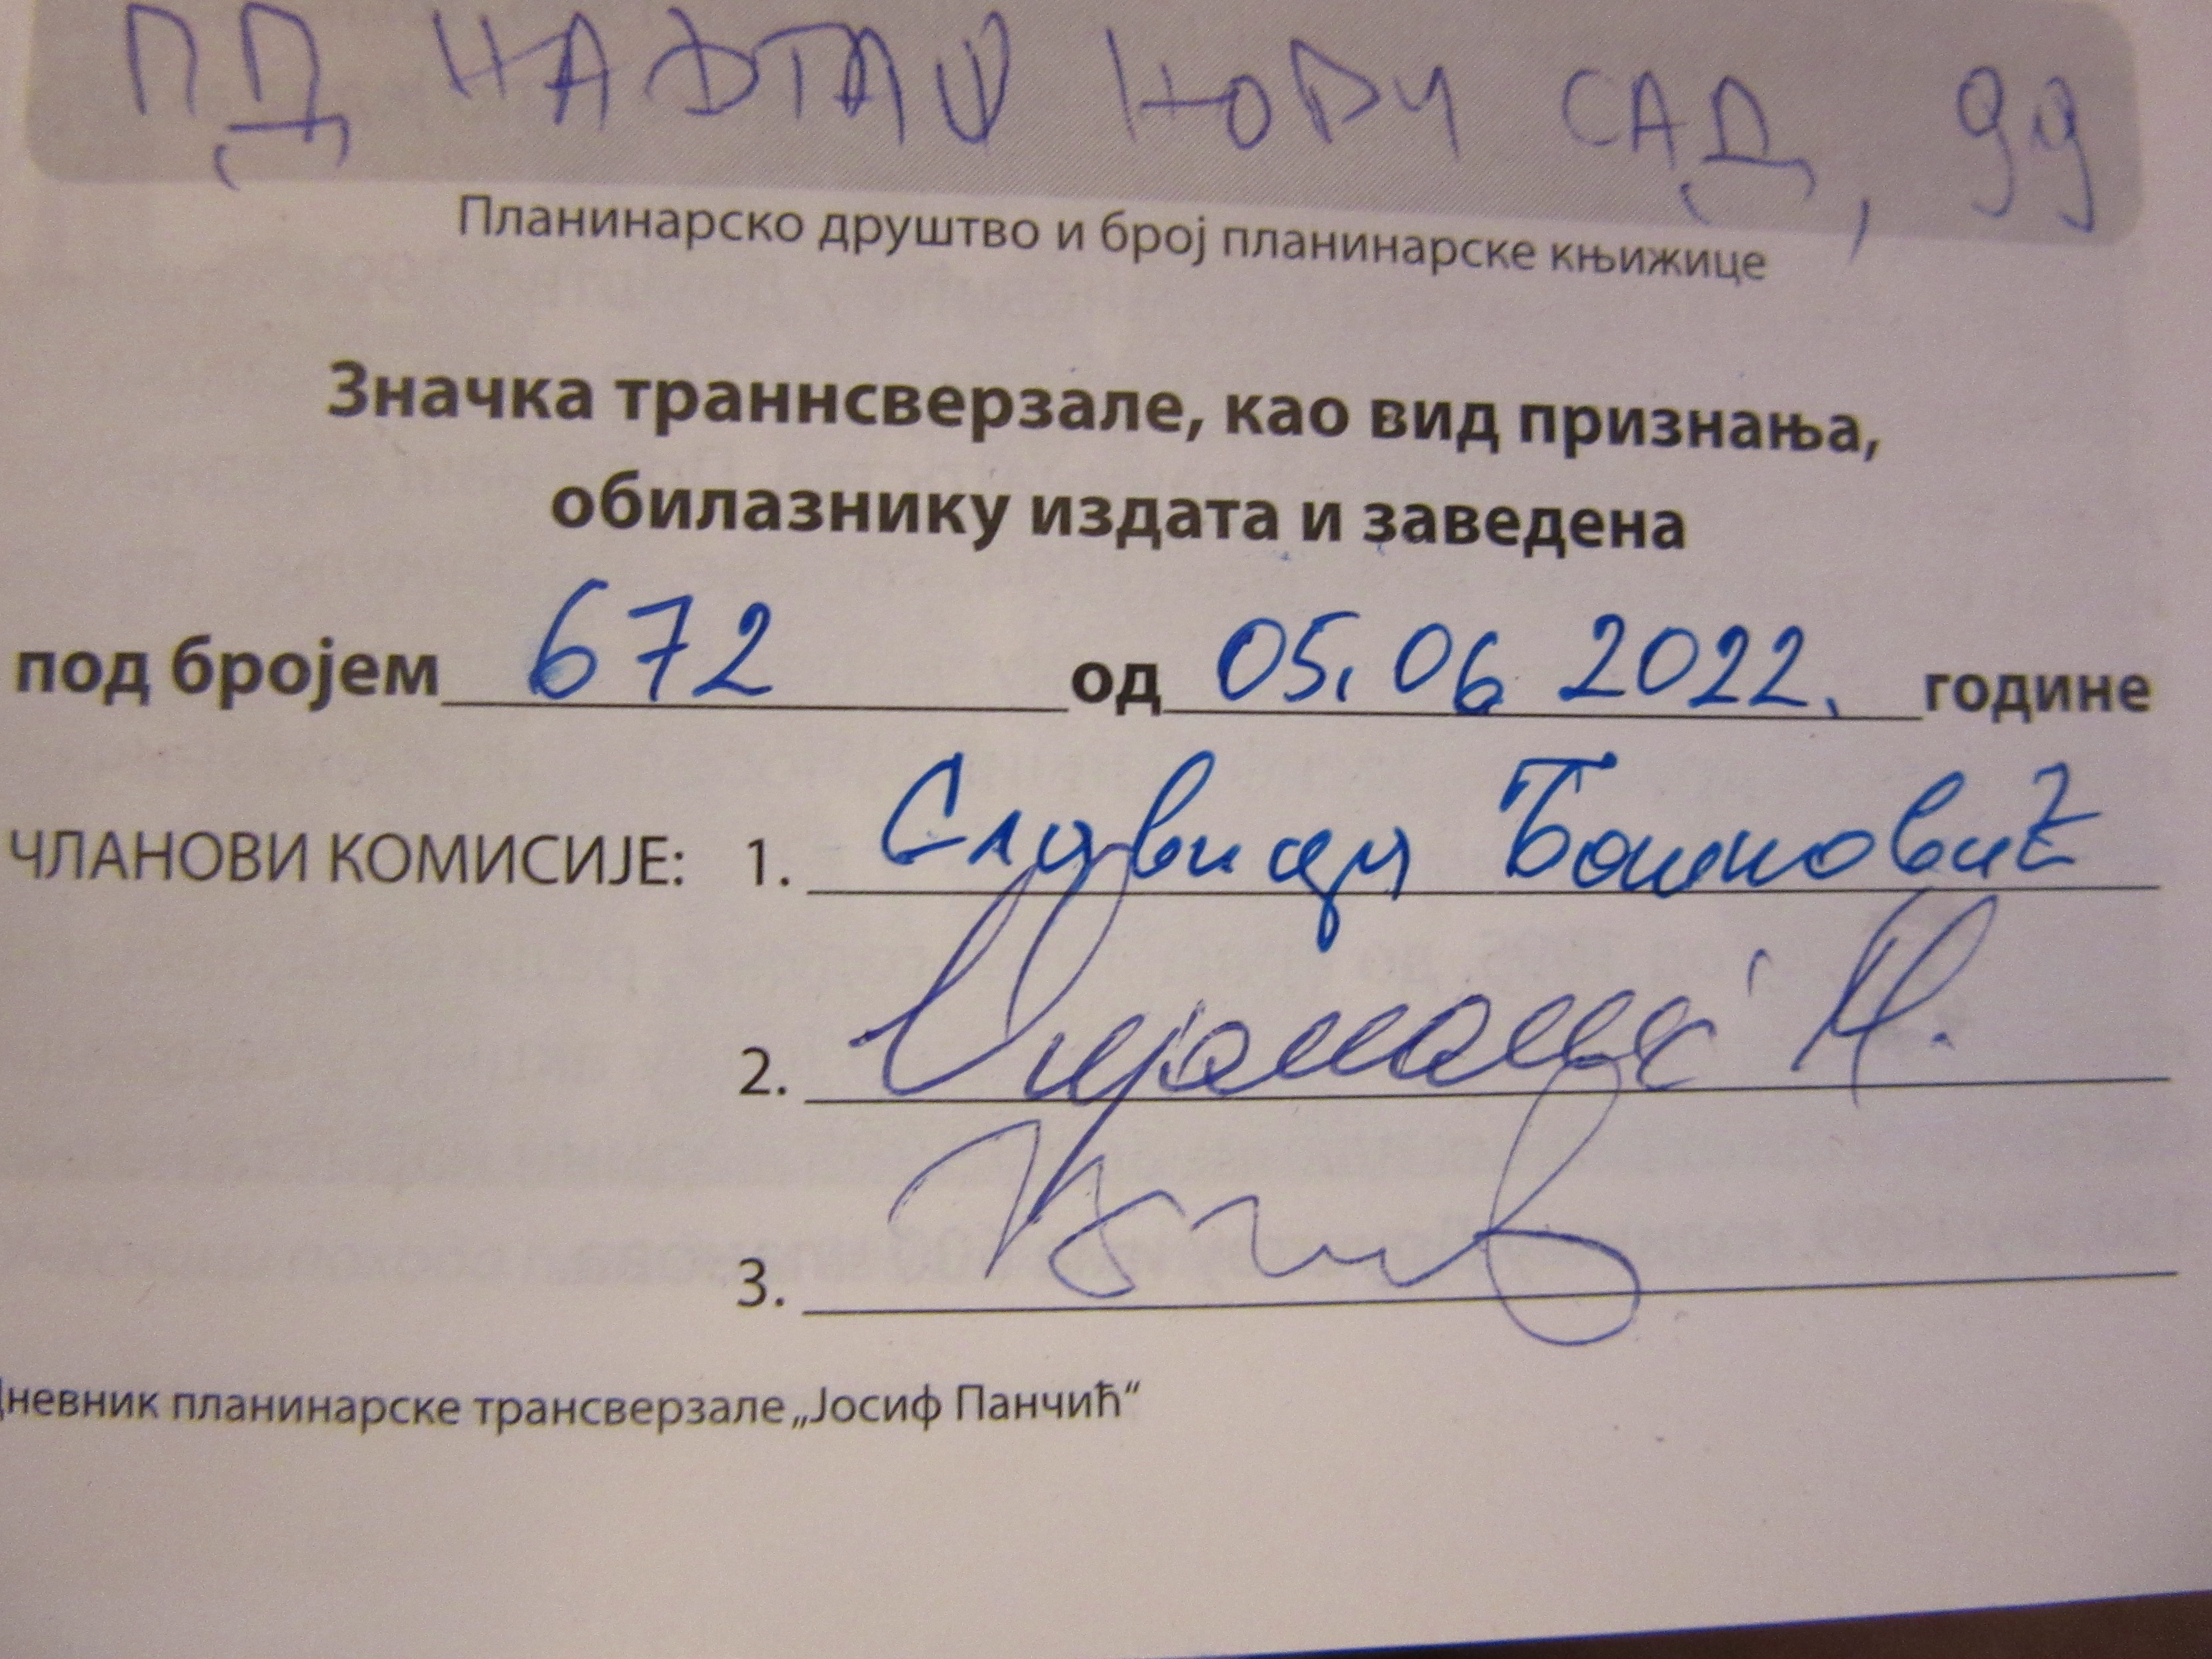 ПД НАФТАШ НОВИ САД, 99
Планинарско друштво и број планинарске књижице
Значка траннсверзале, као вид признања,
обилазнику издата и заведена
под бројем 672 од 05.06 2022. године
ЧЛАНОВИ КОМИСИЈЕ: 1. Славиша Бошковић
2.
3.
Дневник планинарске трансверзале „Јосиф Панчић“